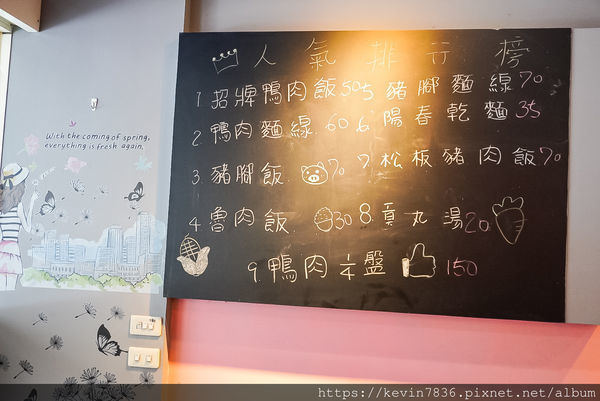 人氣排行榜
1. 招牌鴨肉飯 50 5. 豬腳麵線 70
2. 鴨肉麵線. 60 6. 陽春乾麵 35
3. 豬腳飯. 70 7. 松板豬肉飯 70
4. 魯肉飯. 30 8. 貢丸湯 20
9. 鴨肉 1/4 盤 150
With the coming of spring,
everything is fresh again.
https://kevin7836.pixnet.net/album